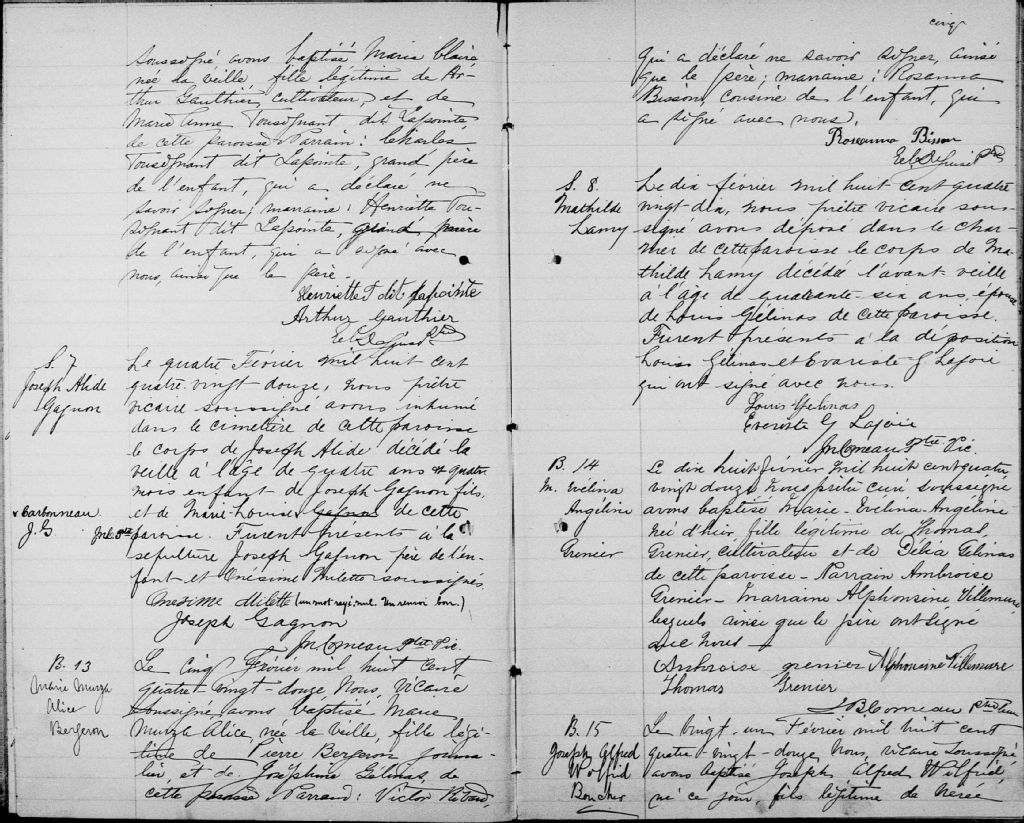 soussigné avons baptisé Maria Claire
née la veille, fille légitime de Ar-
thur Gauthier, cultivateur, et de
Marie Anne Tousignant dit Lapointe
de cette paroisse Parrain: Charles
Tousignant dit Lapointe, grand père
de l'enfant, qui a déclaré ne
savoir signer; marraine: Henriette Tou-
signant dit Lapointe,
de l'enfant, qui a signé avec
nous, ainsi que le père.
Henriette T dit Lapointe
Arthur Gauthier
Ptre
S. 7
Joseph Alide
Gagnon
Le quatre Février mil huit cent
quatre vingt douze, nous prêtre
vicaire soussigné avons inhumé
dans le cimetière de cette paroisse
le corps de Joseph Alide décédé la
veille à l'âge de quatre ans et quatre
mois enfant de Joseph Gagnon fils
v Carbonneau
J. G
et de Marie Louise Gagnon de cette
paroisse. Furent présents à la
sépulture Joseph Gagnon père de l'en-
fant et Onésime Milette soussignés
Onesime Milette (un mot rayé nul. Un renvoi bon.)
Joseph Gagnon
Jn Comeau Ptre Vic.
B. 13
Marie Murza
Alice
Bergeron
Le cinq Février mil huit cent
quatre-vingt-douze, Nous, Vicaire
soussigné, avons baptisé Marie
Murza Alice, née la veille, fille légi-
time de Pierre Bergeron journa-
lier, et de Joséphine Gelinas, de
cette paroisse Parrain: Victor
cinq
qui a déclaré ne savoir signer, ainsi
que le père; marraine: Rosanna
Bisson, cousine de l'enfant, qui
a signé avec nous.
Rosanna Bisson
Ptre
S. 8
Mathilde
Lamy
Le dix février mil huit cent quatre
vingt-dix, nous prêtre vicaire sous-
signé avons déposé dans le char-
nier de cette paroisse le corps de Ma-
thilde Lamy décédée l'avant-veille
à l'âge de quarante-six ans, épouse
de Louis Gélinas de cette paroisse.
Furent présents à la déposition
Louis Gélinas et Evariste G Lajoie
qui ont signé avec nous.
Louis Gelinas
Evariste G Lajoie
Jn Comeau Ptre Vic.
B. 14
M. Evélina
Angéline
Grenier
Le dix huit février mil huit cent quatre
vingt douze Nous prêtre curé soussigné
avons baptisé Marie-Evelina-Angéline
née d'hier, fille légitime de Thomas
Grenier, cultivateur et de Délia Gélinas
de cette paroisse - Parrain Ambroise
Grenier - Marraine Alphonsine Villemure
lesquels ainsi que le père ont signé
avec nous -
Ambroise grenier Alphonsine Villemure
Thomas Grenier
J B Comeau Ptre
B. 15
Joseph Alfred
Wilfrid
Boucher
Le vingt-un Février mil huit cent
quatre vingt-douze Nous, vicaire soussigné,
avons baptisé Joseph Alfred Wilfrid,
né ce jour, fils légitime de Nérée